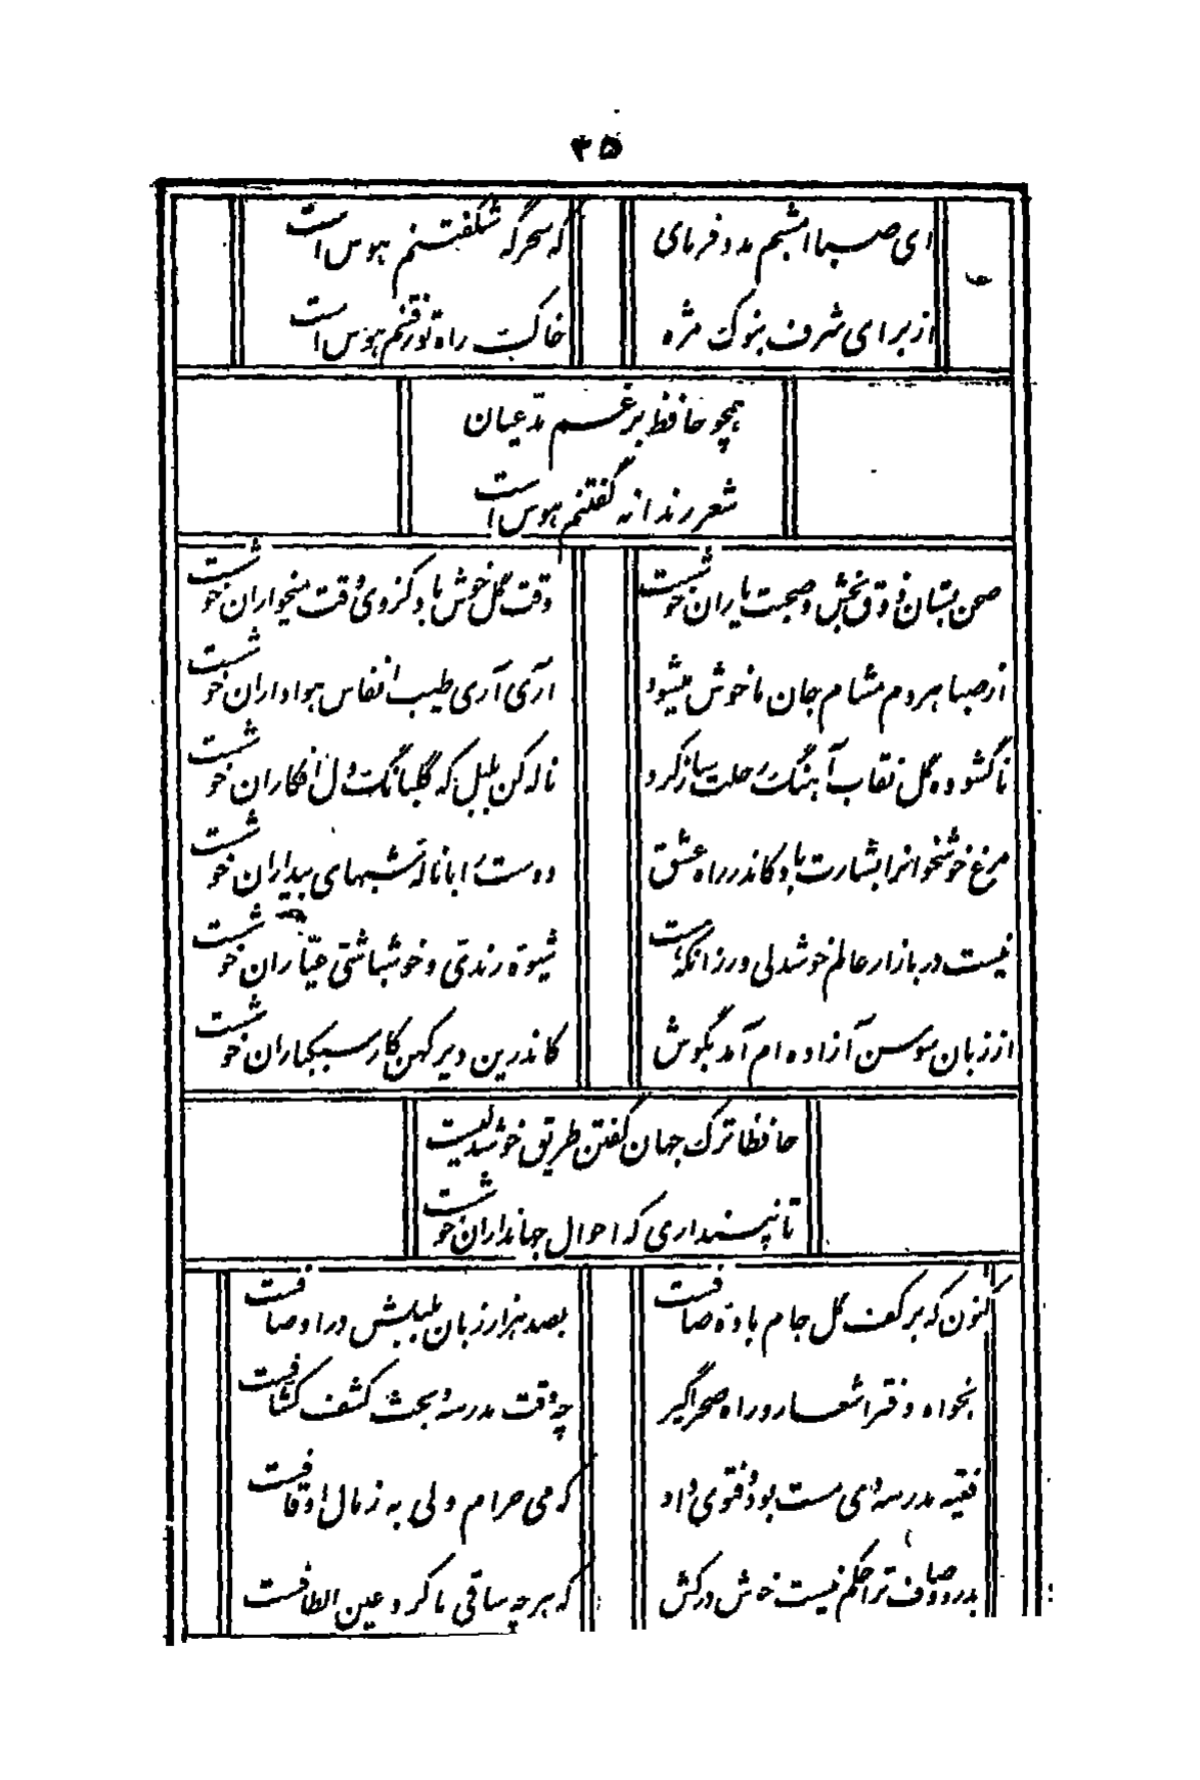 ۳۵
ای صبا امشبم مدد فرمای
که سحرگه شکفتنم هوس است
از برای شرف بنوک مژه
خاک راه تو رفتنم هوس است
همچو حافظ برغم مدّعیان
شعر رندانه گفتنم هوس است
صحن بستان ذوق بخش و صحبت یاران خوشست
وقت گل خوش باد کز وی وقت میخواران خوشست
از صبا هر دم مشام جان ما خوش میشود
آری آری طیب انفاس هواداران خوشست
ناگشوده گل نقاب آهنگ رحلت ساز کرد
ناله کن بلبل که گلبانگ دل افکاران خوشست
مرغ خوشخوانرا بشارت باد کاندر راه عشق
دوست را با ناله شبهای بیداران خوشست
نیست در بازار عالم خوشدلی ور زانکه است
شیوهٔ رندی و خوشباشی عیّاران خوشست
از زبان سوسن آزاده ام آمد بگوش
کاندرین دیر کهن کار سبکباران خوشست
حافظا ترک جهان گفتن طریق خوشدلیست
تا نپنداری که احوال جهانداران خوشست
اکنون که بر کف گل جام بادهٔ صافست
بصد هزار زبان بلبلش در اوصافست
بخواه دفتر اشعار و راه صحرا گیر
چه وقت مدرسه و بحث کشف کشافست
فقیه مدرسه دی مست بود و فتوی داد
که می حرام ولی به ز مال اوقافست
بدرد و صاف ترا حکم نیست خوش درکش
که هر چه ساقی ما کرد عین الطافست